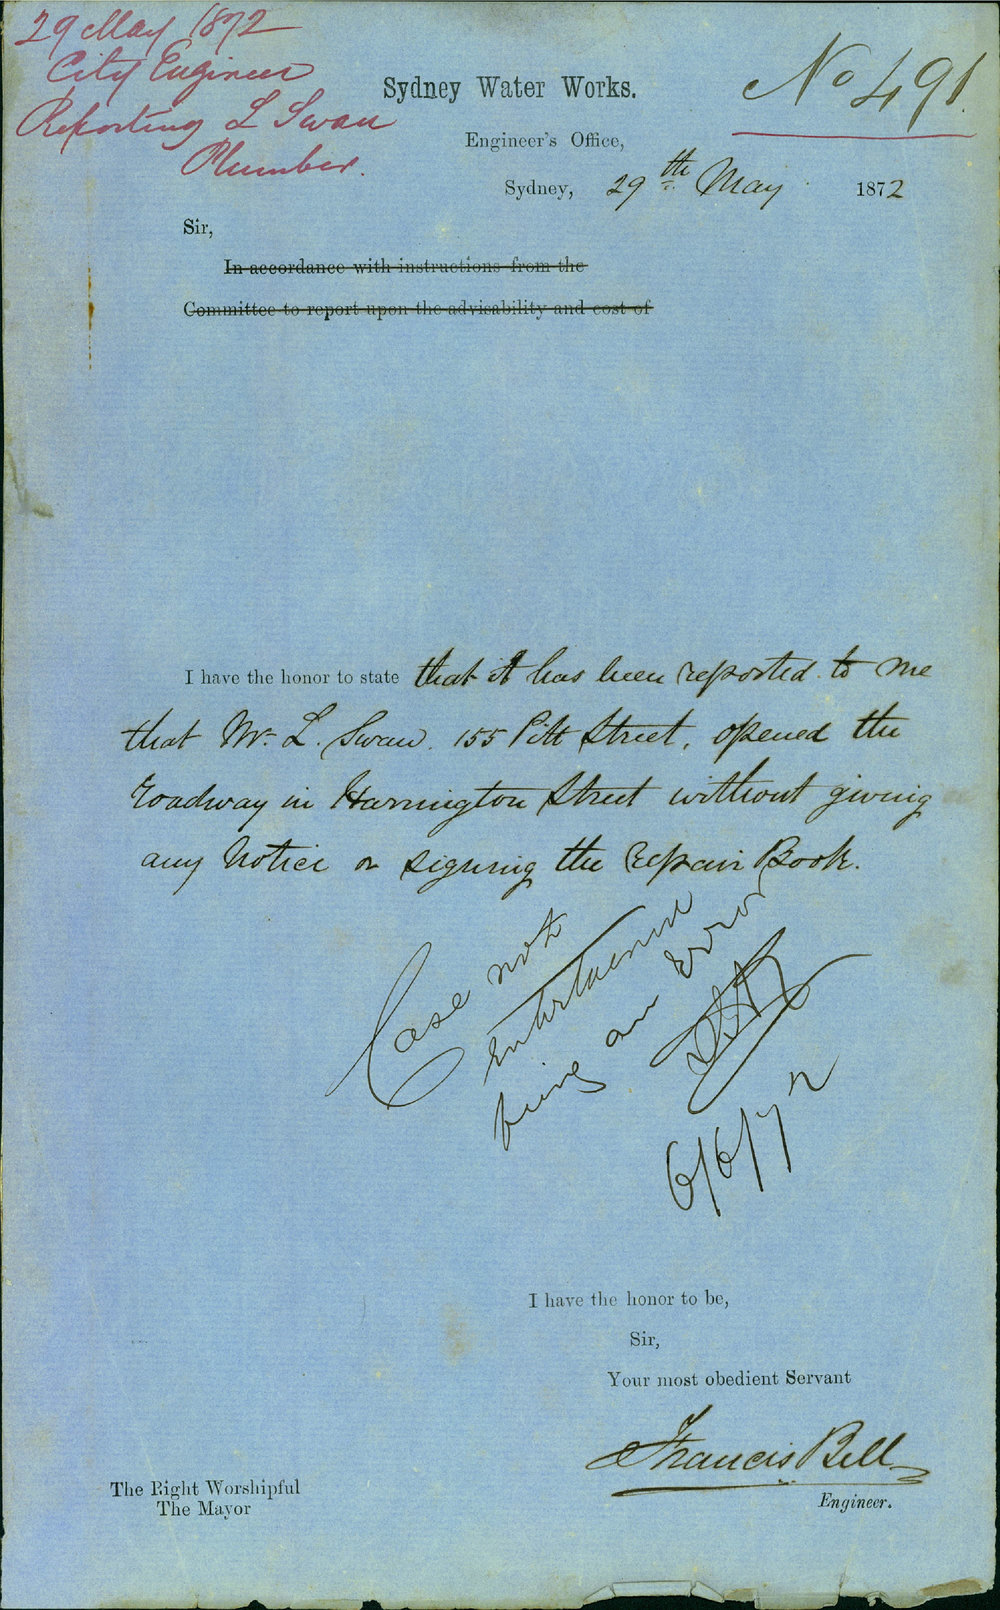 29 May 1872
City Engineer
Reporting L Swan
Plumber.
No 491.
Sydney Water Works.
Engineer's Office,
Sydney, 29th May 1872
Sir,
In accordance with instructions from the
Committee to report upon the advisability and cost of
I have the honor to state that it has been reported to me
that Mr. L. Swan. 155 Pitt Street, opened the
roadway in Harrington Street without giving
any Notice or signing the repair Book.
Case not
entertained
being an Error
6/6/72
I have the honor to be,
Sir,
Your most obedient Servant
Francis Bell
Engineer.
The Right Worshipful
The Mayor